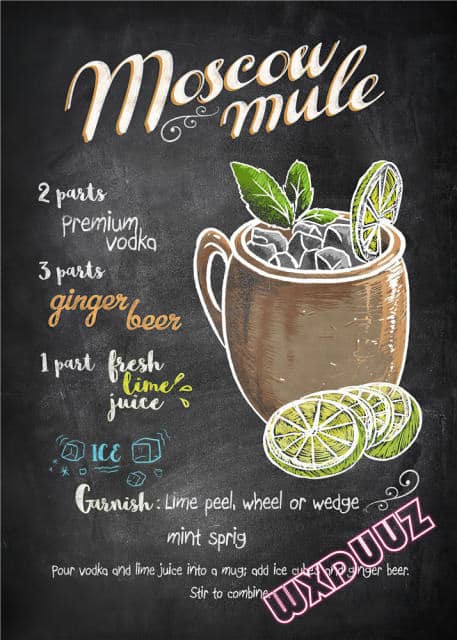 Moscow
mule
2 parts
Premium
vodka
3 parts
ginger
beer
1 part fresh
lime
juice
ICE
Garnish: Lime peel, wheel or wedge
mint sprig
Pour vodka and lime juice into a mug; add ice cubes and ginger beer.
Stir to combine
WXDUUZ